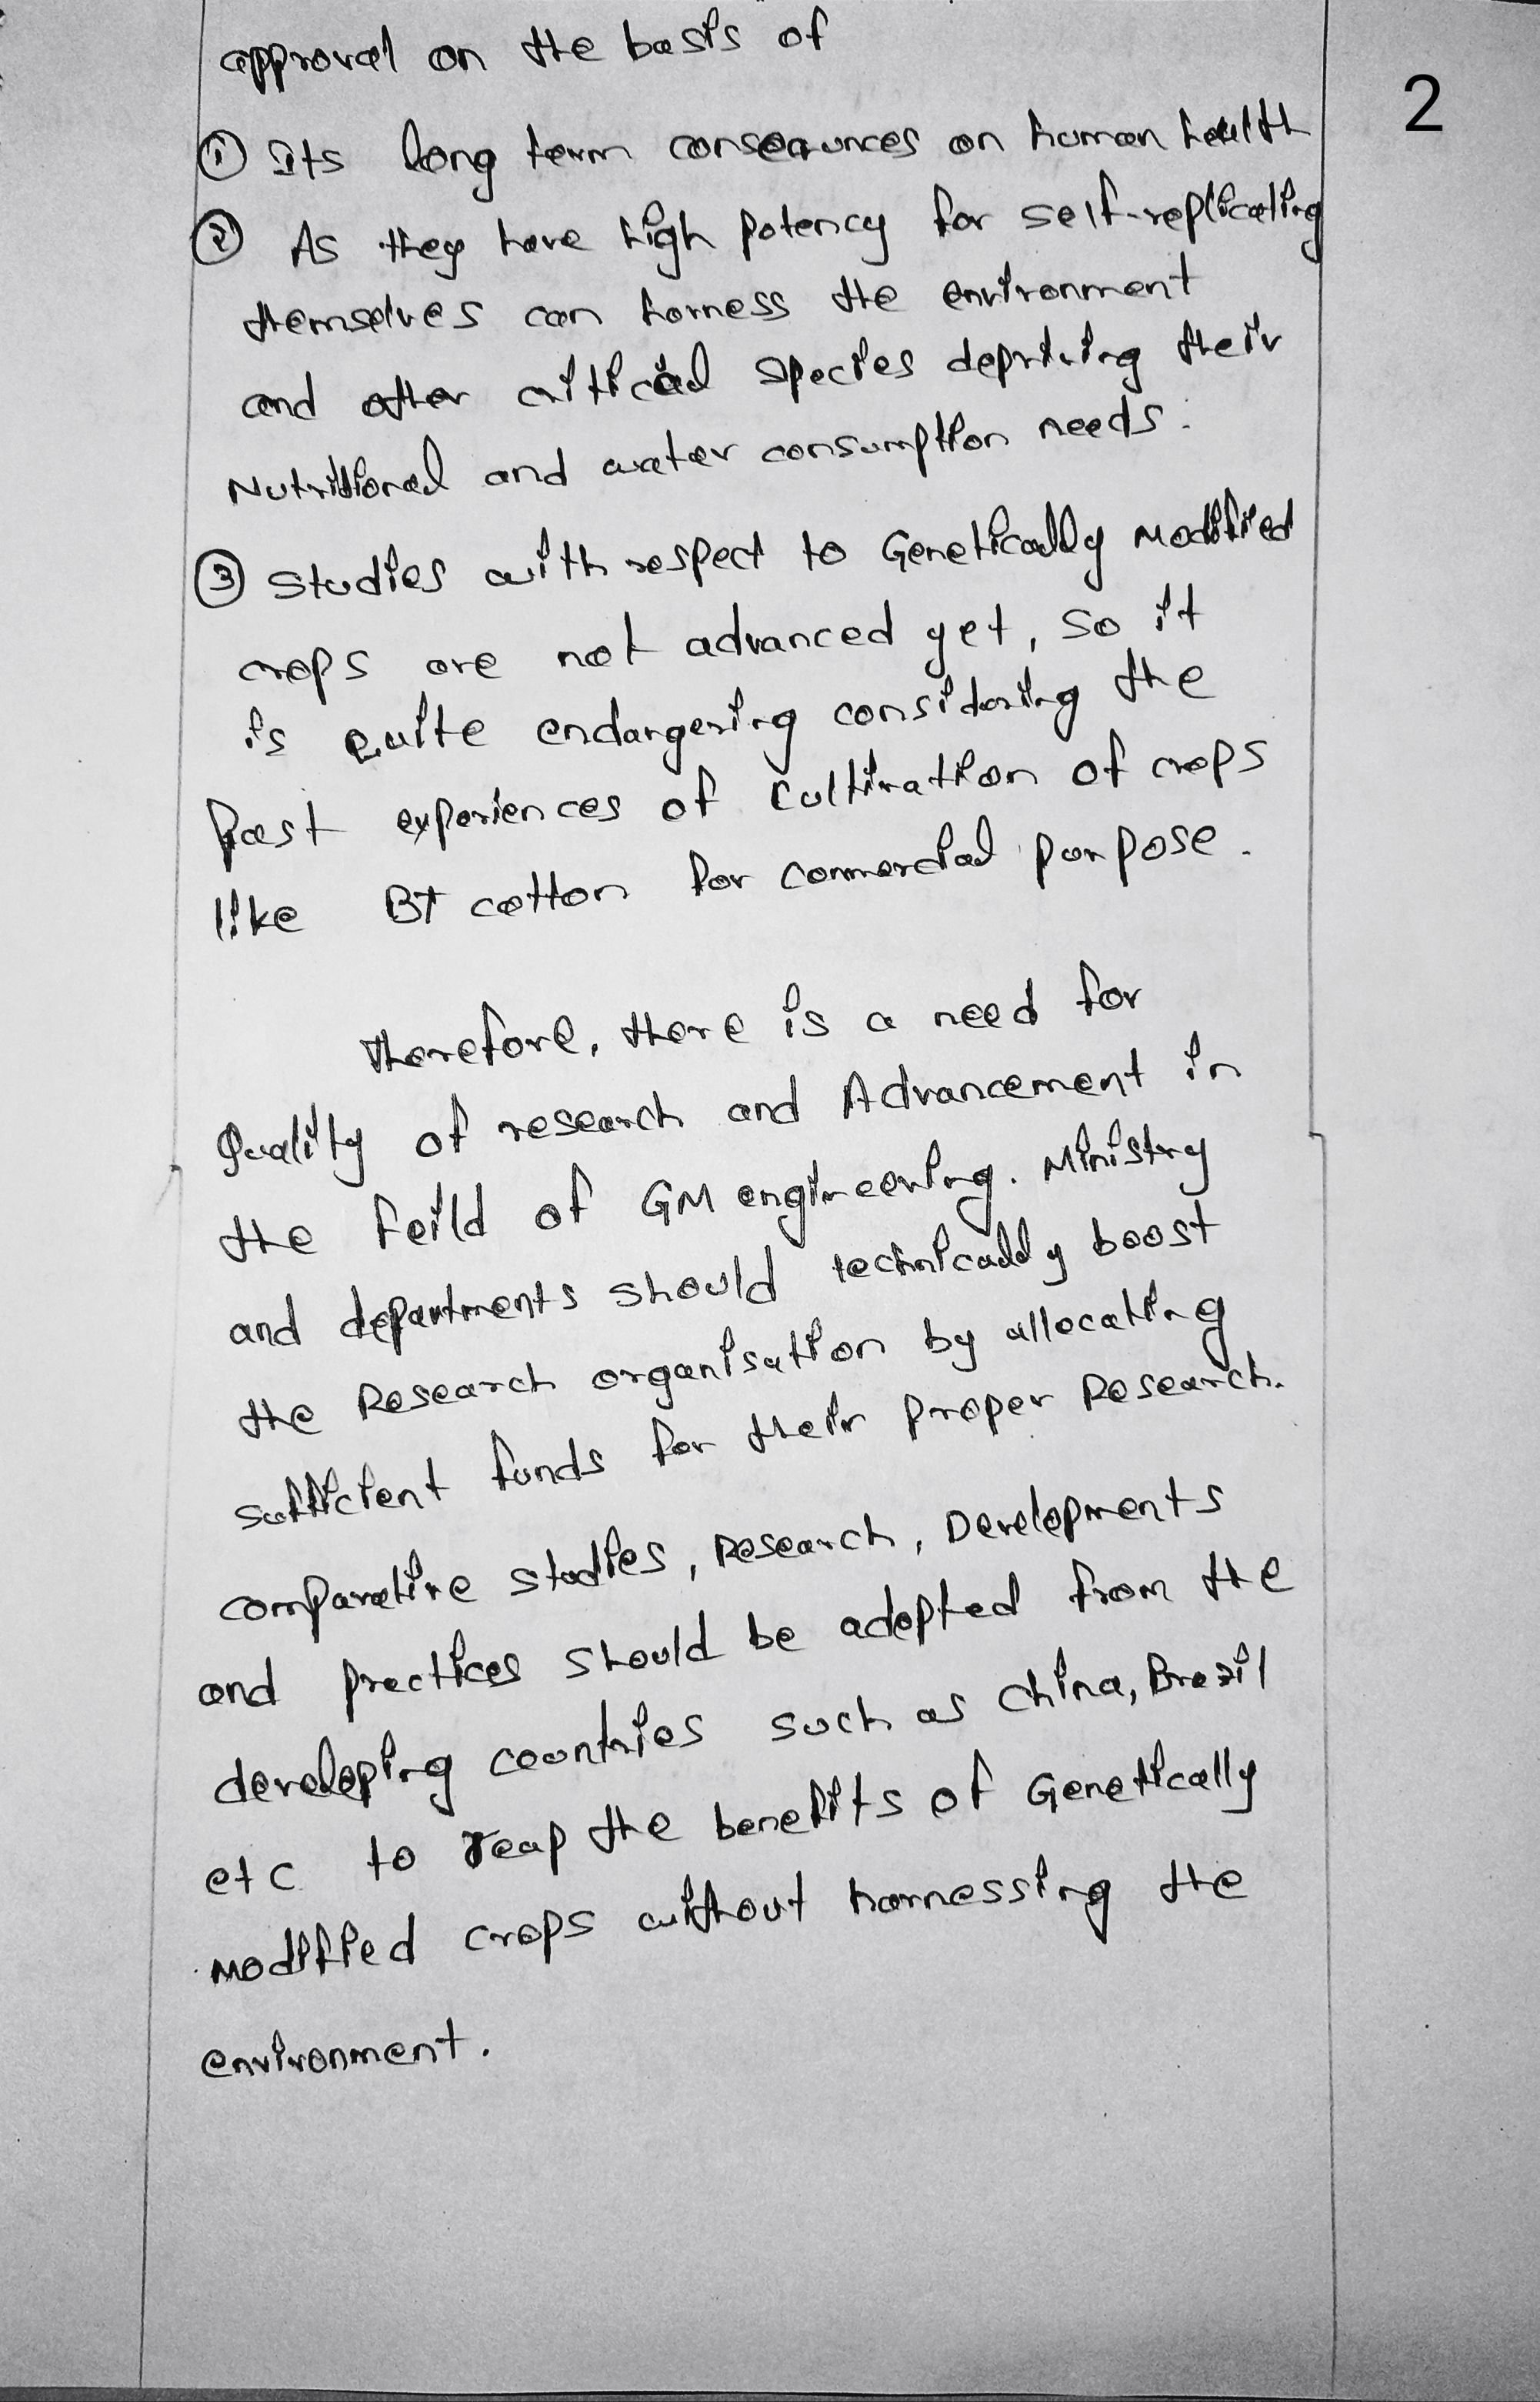 approval on the basis of
2
① Its long term consequnces on human health
② As they have high potency for self-replicating
themselves can harness the environment
and other critical species depriving their
Nutritional and water consumption needs.
③ Studies with respect to Genetically Modified
crops are not advanced yet, so it
is quite endangering considering the
past experiences of cultivation of crops
like BT cotton for commercial purpose.
Therefore, there is a need for
Quality of research and Advancement in
the feild of GM engineering. Ministry
and departments should technically boost
the Research organisation by allocating
sufficient funds for their proper Research.
comparative studies, Research, Developments
and practices should be adopted from the
developing countries such as China, Brazil
etc to reap the benefits of Genetically
Modified crops without harnessing the
environment.